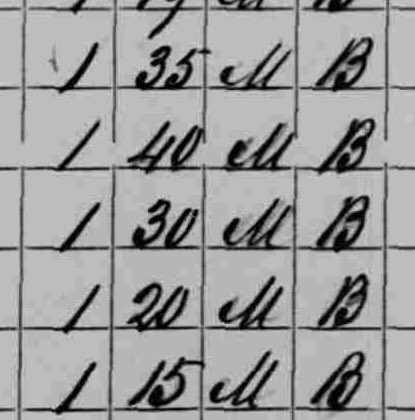 1 35 M B
1 40 M B
1 30 M B
1 20 M B
1 15 M B